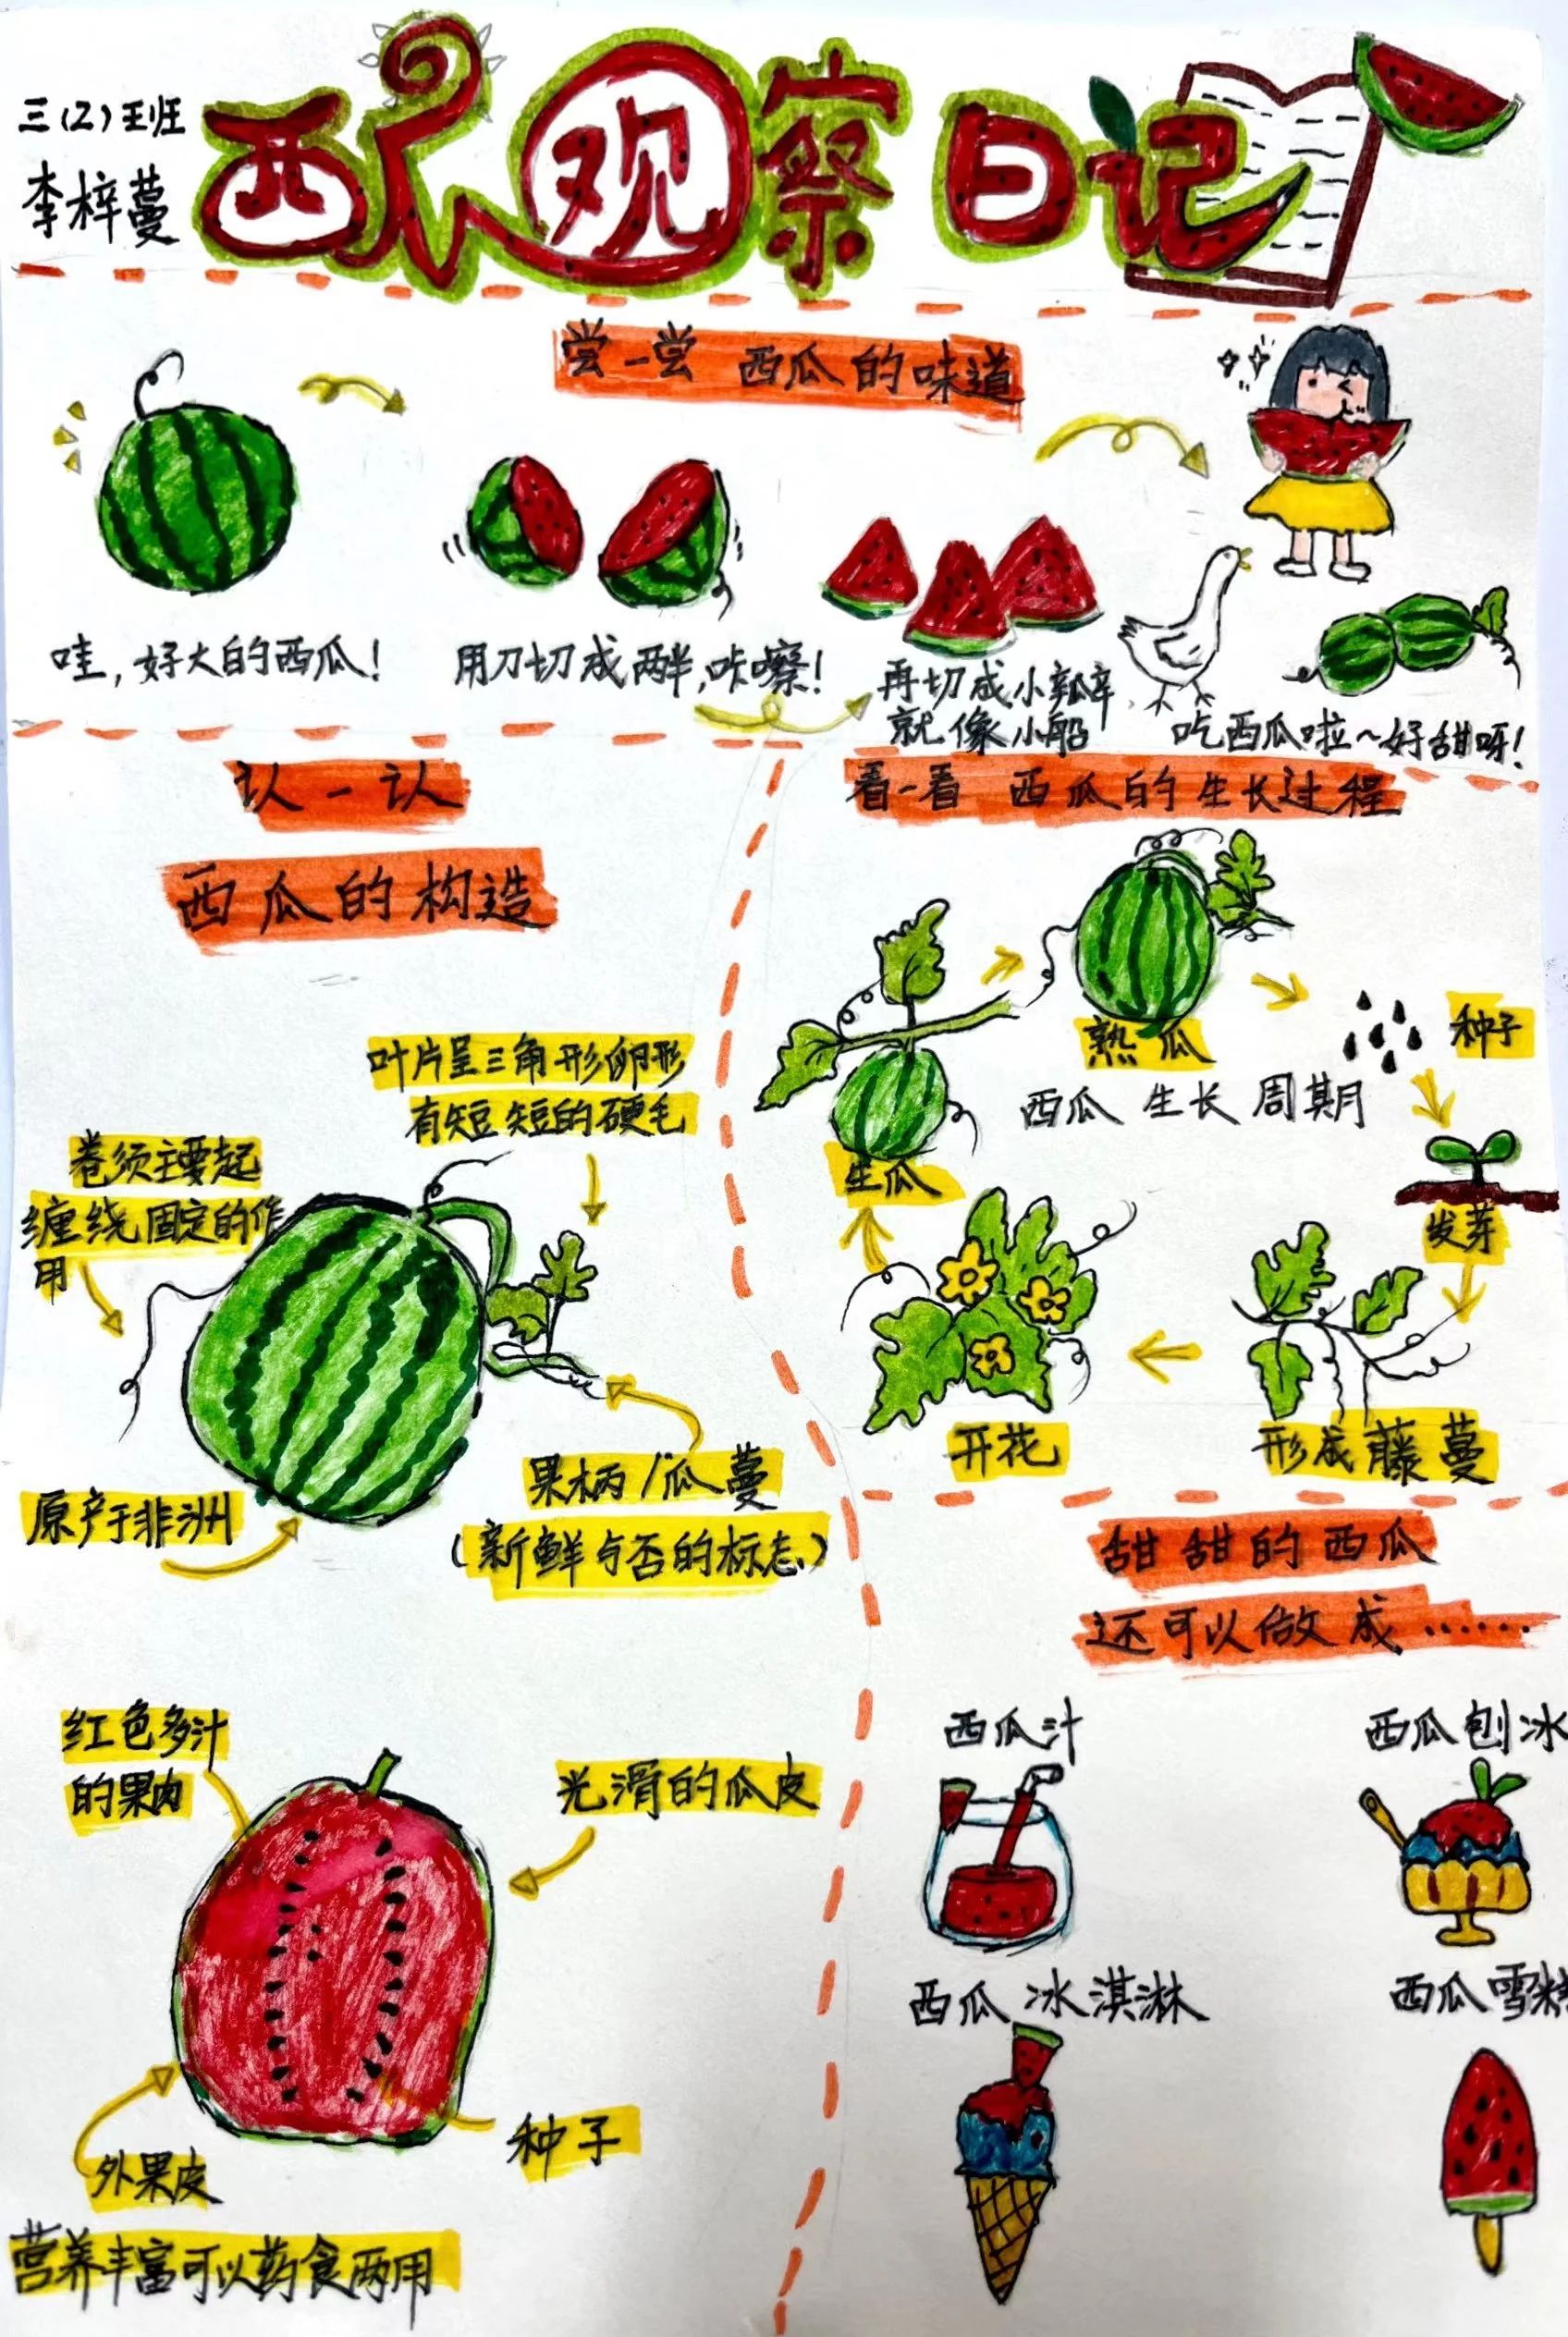 三(2)班
李梓蔓
西瓜观察日记
尝一尝 西瓜的味道
哇,好大的西瓜!
用刀切成两半,咔嚓!
再切成小瓣
就像小船
吃西瓜啦~好甜呀!
认一认
西瓜的构造
叶片呈三角形卵形
有短短的硬毛
卷须主要起
缠绕固定的作
用
原产于非洲
果柄/瓜蔓
(新鲜与否的标志)
红色多汁
的果肉
光滑的瓜皮
种子
外果皮
营养丰富可以药食两用
看一看 西瓜的生长过程
熟瓜
种子
西瓜 生长 周期
生瓜
发芽
开花
形成藤蔓
甜甜的西瓜
还可以做成……
西瓜汁
西瓜刨冰
西瓜 冰淇淋
西瓜雪糕